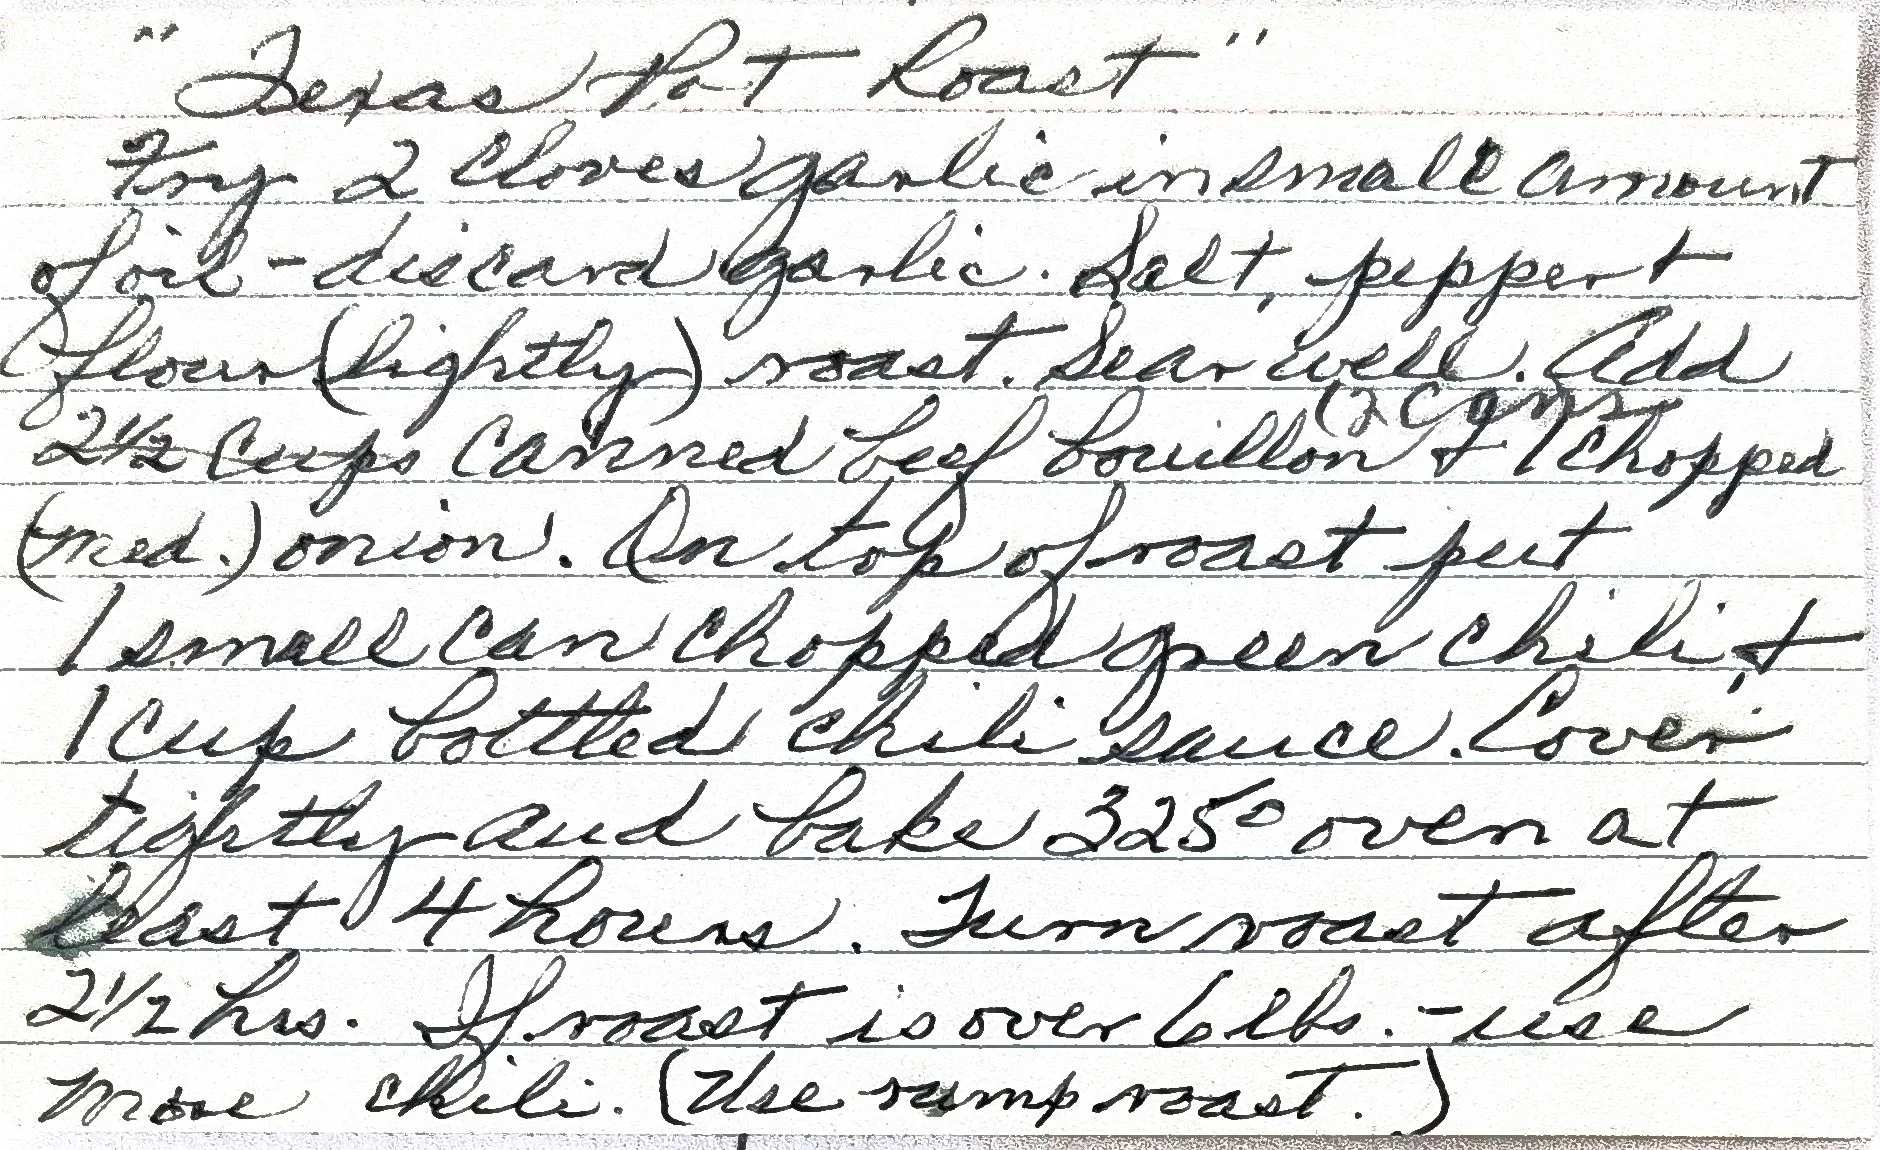 "Texas Pot Roast"
Fry 2 cloves garlic in small amount
of oil - discard garlic. Salt, pepper +
flour (lightly) roast. Sear well. Add
(2 cans)
2 1/2 cups canned beef bouillon + 1 chopped
(med.) onion. On top of roast put
1 small can chopped green chili, +
1 cup bottled chili sauce. Cover
tightly and bake 325° oven at
least 4 hours. Turn roast after
2 1/2 hrs. If roast is over 6 lbs. - use
more chili. (Use rump roast.)